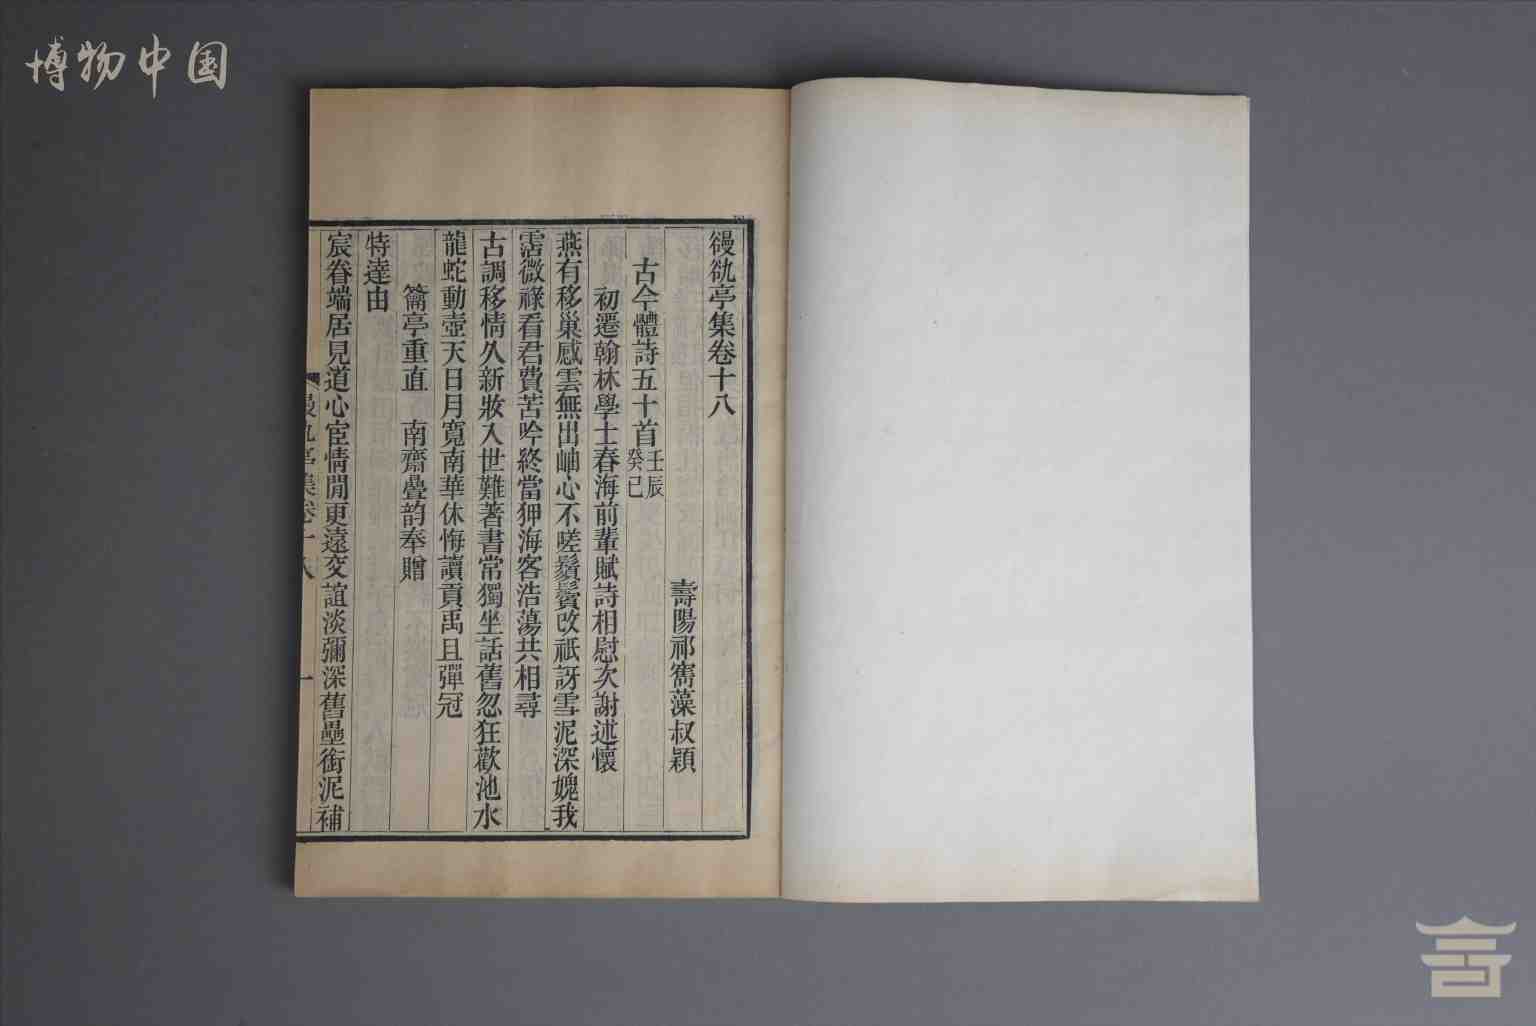 博物中国
䜱䜪亭集卷十八
壽陽祁寯藻叔穎
古今體詩五十首壬辰癸巳
初遷翰林學士春海前輩賦詩相慰次謝述懷
燕有移巢感雲無出岫心不嗟鬚鬢改祇訝雪泥深媿我
霑微祿看君費苦吟終當狎海客浩蕩共相尋
古調移情久新妝入世難著書常獨坐話舊忽狂歡池水
龍蛇動壺天日月寬南華休悔讀貢禹且彈冠
籥亭重直　南齋疊韵奉贈
特達由
宸眷端居見道心宦情閒更遠交誼淡彌深舊壘銜泥補
亭集卷十八
一